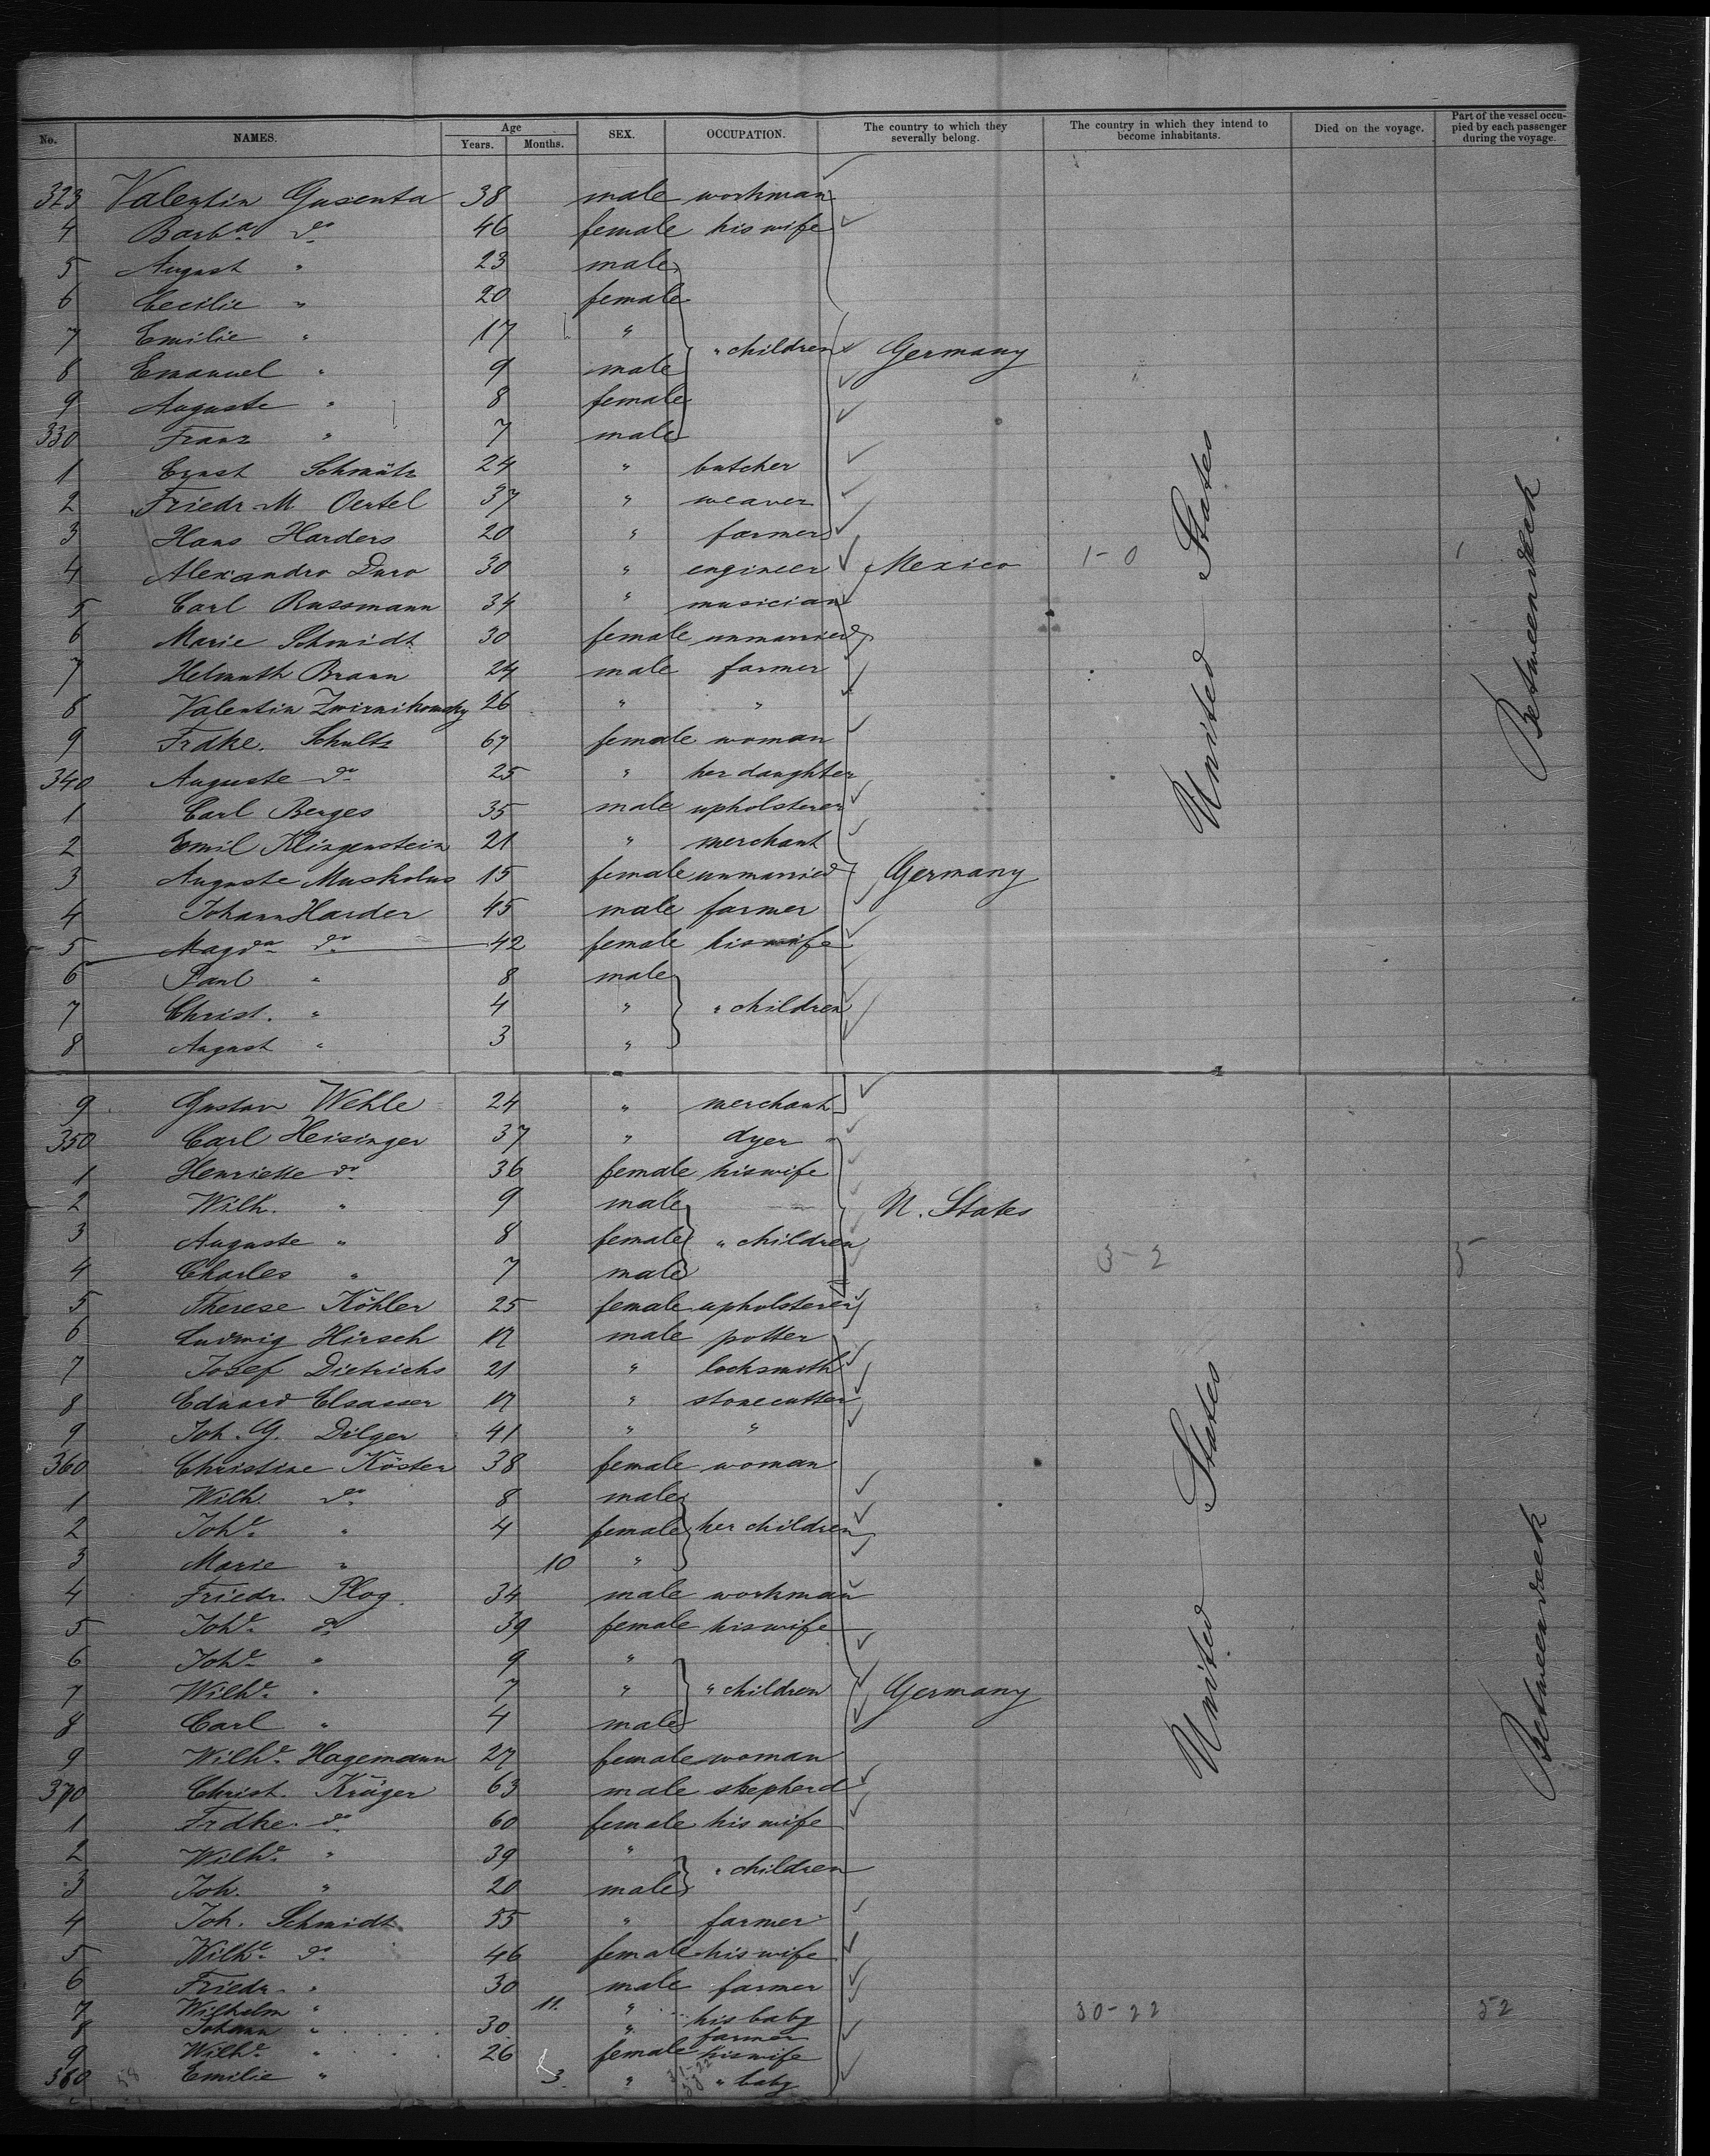 No. NAMES. Age Years. Months. SEX. OCCUPATION. The country to which they severally belong. The country in which they intend to become inhabitants. Died on the voyage. Part of the vessel occupied by each passenger during the voyage.
323 Valentin Gusenta 38 male workman
4 Barb.a do 46 female his wife
5 August " 23 male
6 Cecilie " 20 female
7 Emilie " 17 " " children Germany
8 Emanuel " 9 male
9 Auguste " 8 female
330 Franz " 7 male
1 Ernst 24 " butcher
2 Friedr. M Oertel 37 " weaver
3 Hans Harders 20 " farmer
4 Alexandro Duro 30 " engineer Mexico 1-0 1
5 Carl Russmann 34 " musician
6 Marie Schmidt 30 female unmarried
7 Helmuth Braun 24 male farmer
8 Valentin 26 " "
9 Frdke. Schultz 67 female woman
340 Auguste do 25 " her daughter
1 Carl Berges 35 male upholsterer
2 Emil Klingenstein 21 " merchant
3 Auguste Muskolus 15 female unmarried Germany
4 Johann Harder 45 male farmer
5 Magda do 42 female his wife
6 Paul " 8 male
7 Christ. " 4 " " children
8 August " 3 "
United States
Betweendeck
9 Gustav Wehle 24 " merchant
350 Carl Heisinger 37 " dyer
1 Henriette do 36 female his wife
2 Wilh. " 9 male U. States
3 Auguste " 8 female " children 3-2 5
4 Charles " 7 male
5 Therese Köhler 25 female upholsterer
6 Ludwig Hirsch 17 male potter
7 Josef Dietrichs 21 " locksmith
8 Eduard Elsasser 17 " stonecutter
9 Joh. G. Dilger 41 " "
360 Christine Köster 38 female woman
1 Wilh. do 8 male
2 Johe " 4 female her children
3 Marie " 10 "
4 Friedr. Plog. 34 male workman
5 Johe do 39 female his wife
6 Johe " 9 "
7 Wilhe " 7 " " children Germany
8 Carl " 4 male
9 Wilhe Hagemann 27 female woman
370 Christ. Krüger 63 male shepherd
1 Frdke. do 60 female his wife
2 Wilhe " 39 " " children
3 Joh. " 20 male
4 Joh. Schmidt 55 " farmer
5 Wilhe do 46 female his wife
6 Friedr. " 30 male farmer
7 Wilhelm " 11. " his baby 30-22 52
8 Johann " 30 " farmer
9 Wilhe " 26 female his wife
380 58 Emilie " 3 " " baby
United States
Betweendeck